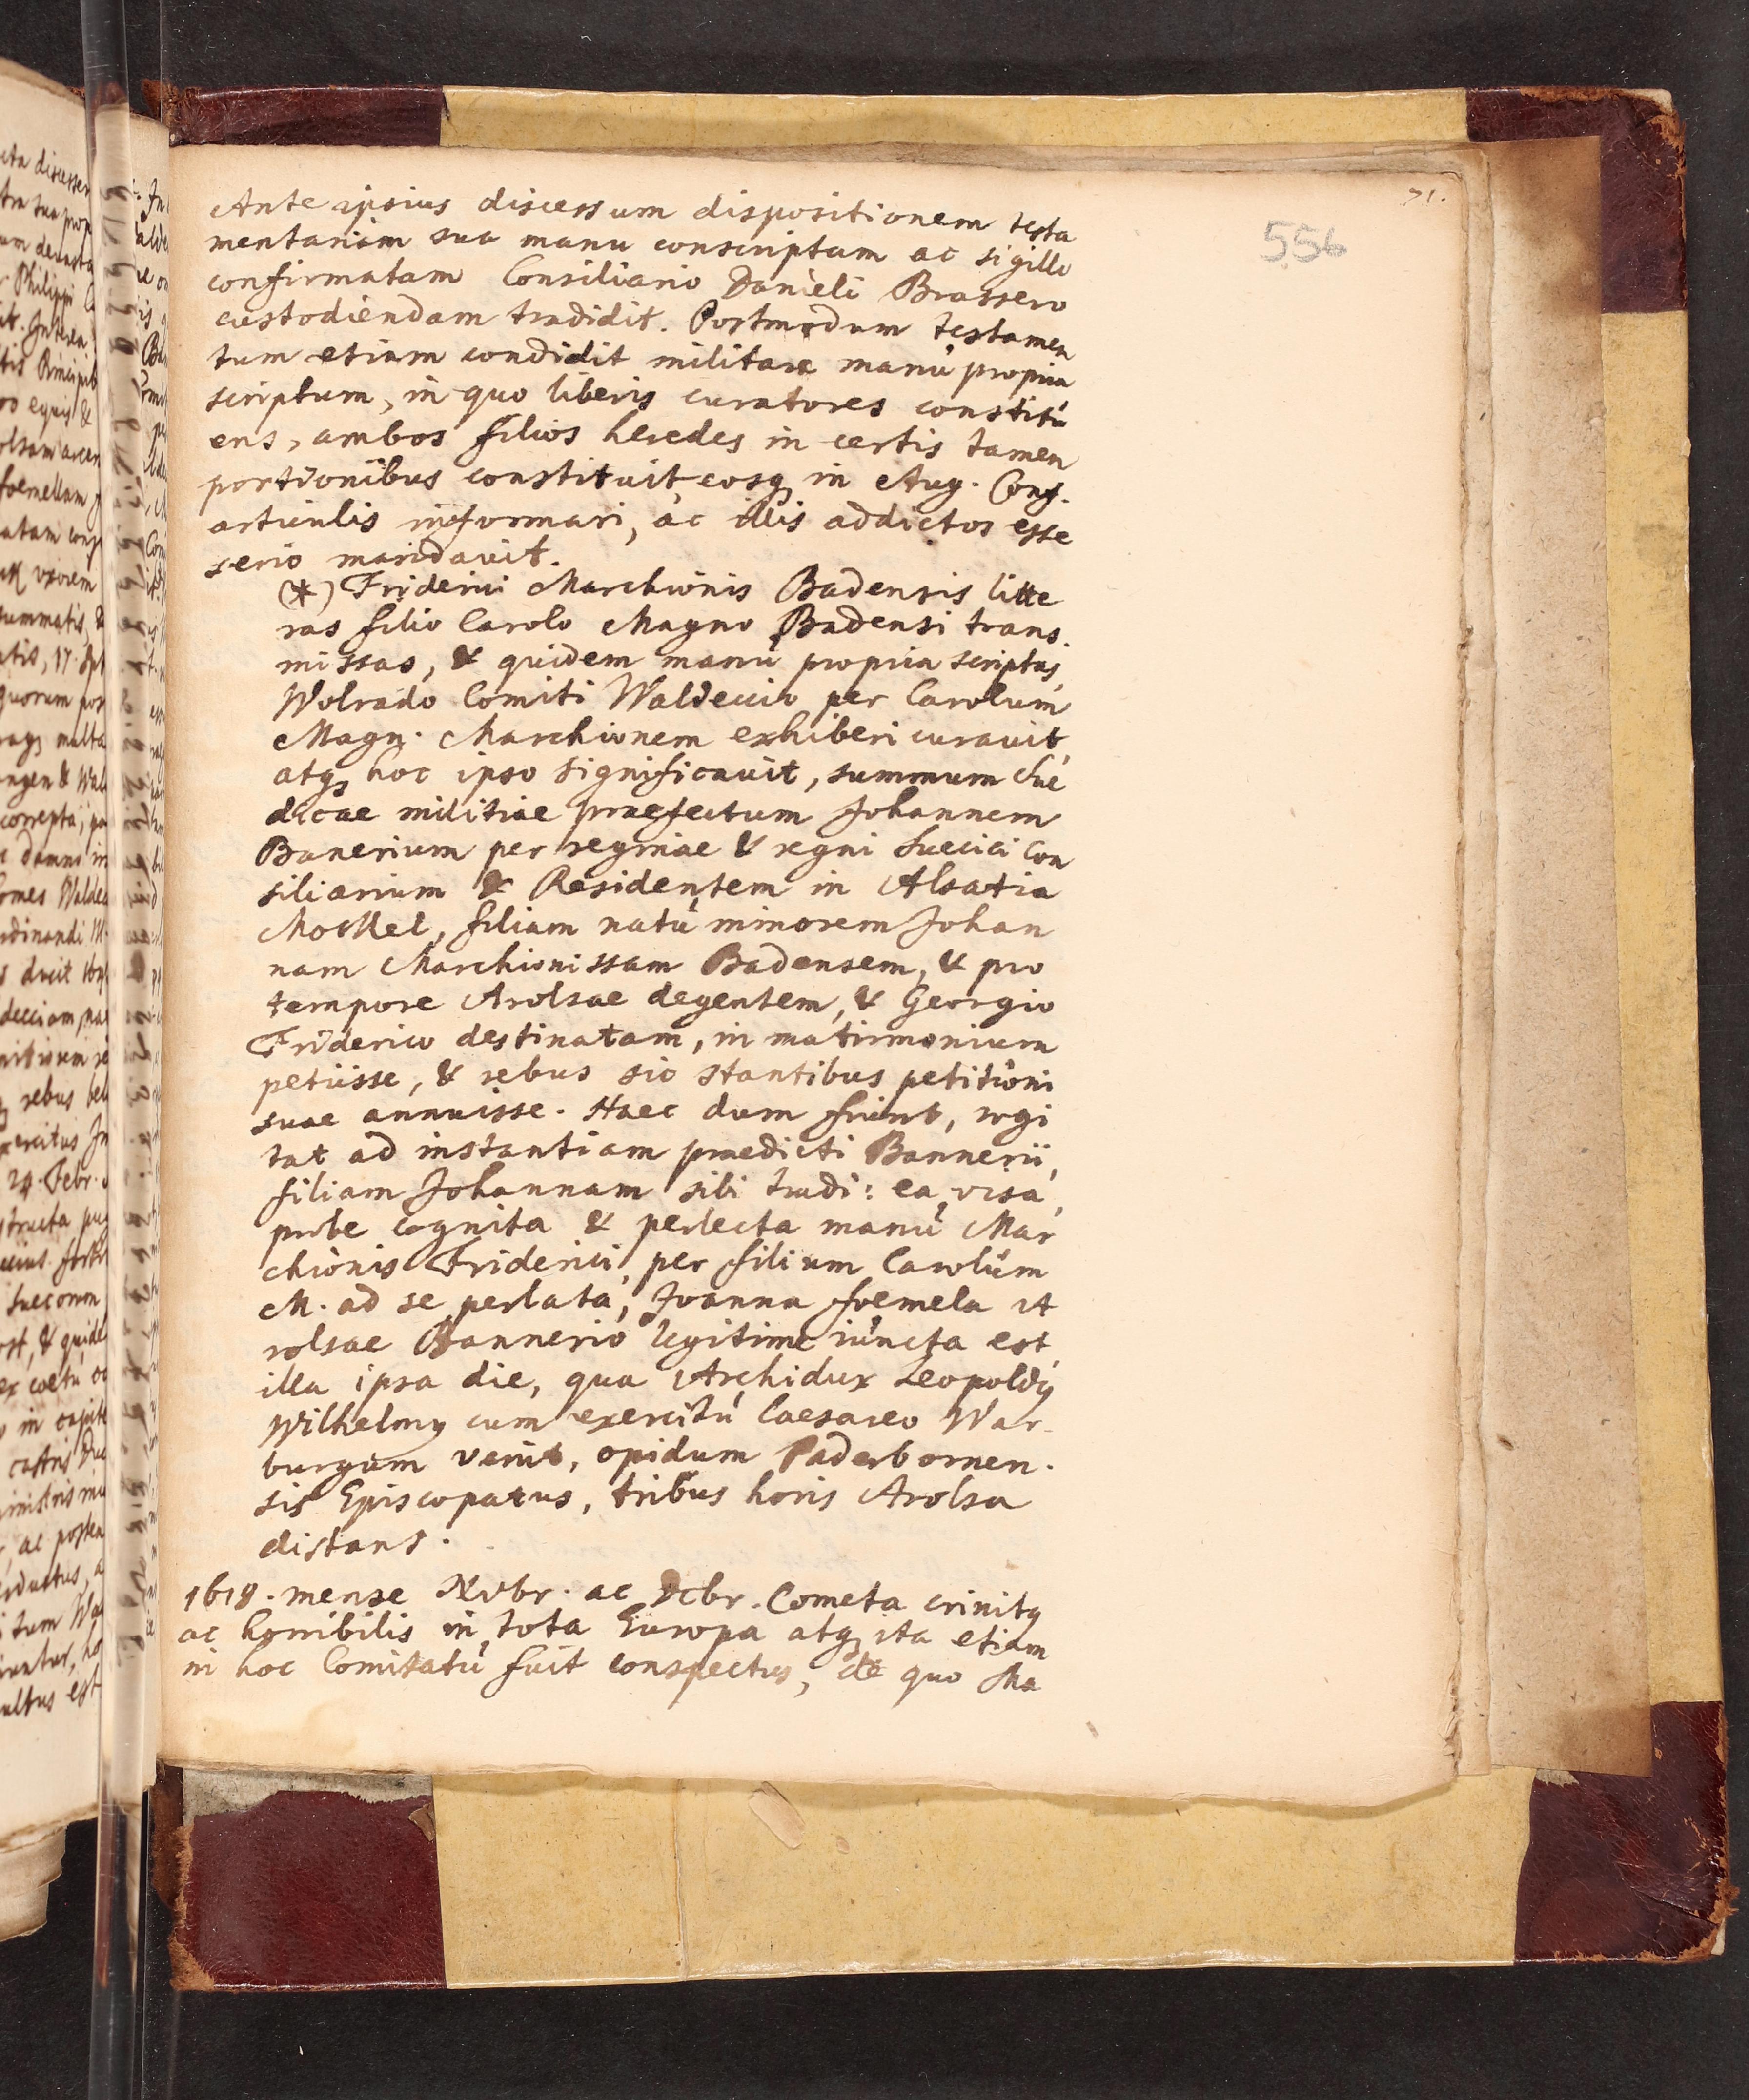 71.
556
Ante ipsius discessum dispositionem testa
mentariam sua manu conscriptam ac sigillo
confirmatam Consiliario Danieli Brassero
custodiendam tradidit. Postmodum testamen
tum etiam condidit militare manu propria
scriptum, in quo liberis curatores constitu
ens, ambos filios heredes in certis tamen
portionibus constituit, eosq in Aug. Conf.
articulis informari, ac illis addictos esse
serio mandavit.
(*) Friderici Marchionis Badensis litte
ras filio Carolo Magno Badensi trans
missas, & quidem manu propria scriptas,
Wolrado Comiti Waldeccio per Carolum
Magn. Marchionem exhiberi curavit,
atq hoc ipso significavit, summum Sue
dicae militiae praefectum Johannem
Banerium per reginae & regni Suecici Con
siliarium & Residentem in Alsatia
Mockel, filiam natu minorem Johan
nam Marchionissam Badensem, & pro
tempore Arolsae degentem, & Georgio
Friderico destinatam, in matrimonium
petiisse, & rebus sic stantibus petitioni
suae annuisse. Haec dum fiunt, rogi
tat ad instantiam praedicti Bannerii,
filiam Johannam sibi tradi: ea visa,
probe cognita & perlecta manu Mar
chionis Friderici, per filium Carolum
M. ad se perlata, Joanna foemela A
rolsae Bannerio legitime iuncta est,
illa ipsa die, qua Archidux Leopoldq
Wilhelmq cum exercitu Caesareo War-
burgum venit, opidum Paderbornen.
sis Episcopatus, tribus horis Arolsa
distans.
1618. mense Nvbr. ac Dcbr. Cometa crinitq
ac horribilis in tota Europa atq ita etiam
in hoc Comitatu fuit conspectus, de quo Sha